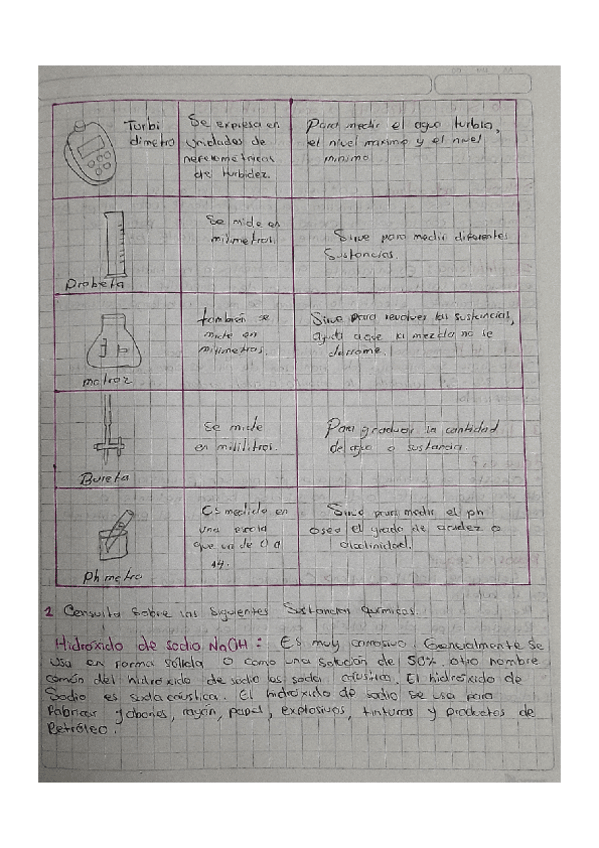 Turbi
dimetro
Se expresa en
unidades de
nefelometricas
de turbidez.
Para medir el agua turbia,
el nivel maximo y el nivel
minimo
Probeta
Se mide en
milimetros.
Sirve para medir diferentes
Sustancias.
matraz
también se
mide en
milimetros.
Sirve para revolver las sustancias,
ayuda a que la mezcla no se
derrame.
Bureta
Se mide
en mililitros.
Para graduar la cantidad
de agua o sustancia.
Ph metro
Es medido en
una escala
que va de 0 a
14.
Sirve para medir el ph
osea el grado de acidez o
alcalinidad.
2 Consulta sobre las siguientes Sustancias químicas.
Hidroxido de sodio NaOH: Es muy corrosivo. Generalmente se
usa en forma sólida o como una solución de 50%. otro nombre
común del hidroxido de sodio es soda caustica. El hidróxido de
Sodio es caustica. El hidróxido de sodio se usa para
Fabricar jabones, rayón, papel, explosivos, tinturas y productos de
Petróleo.